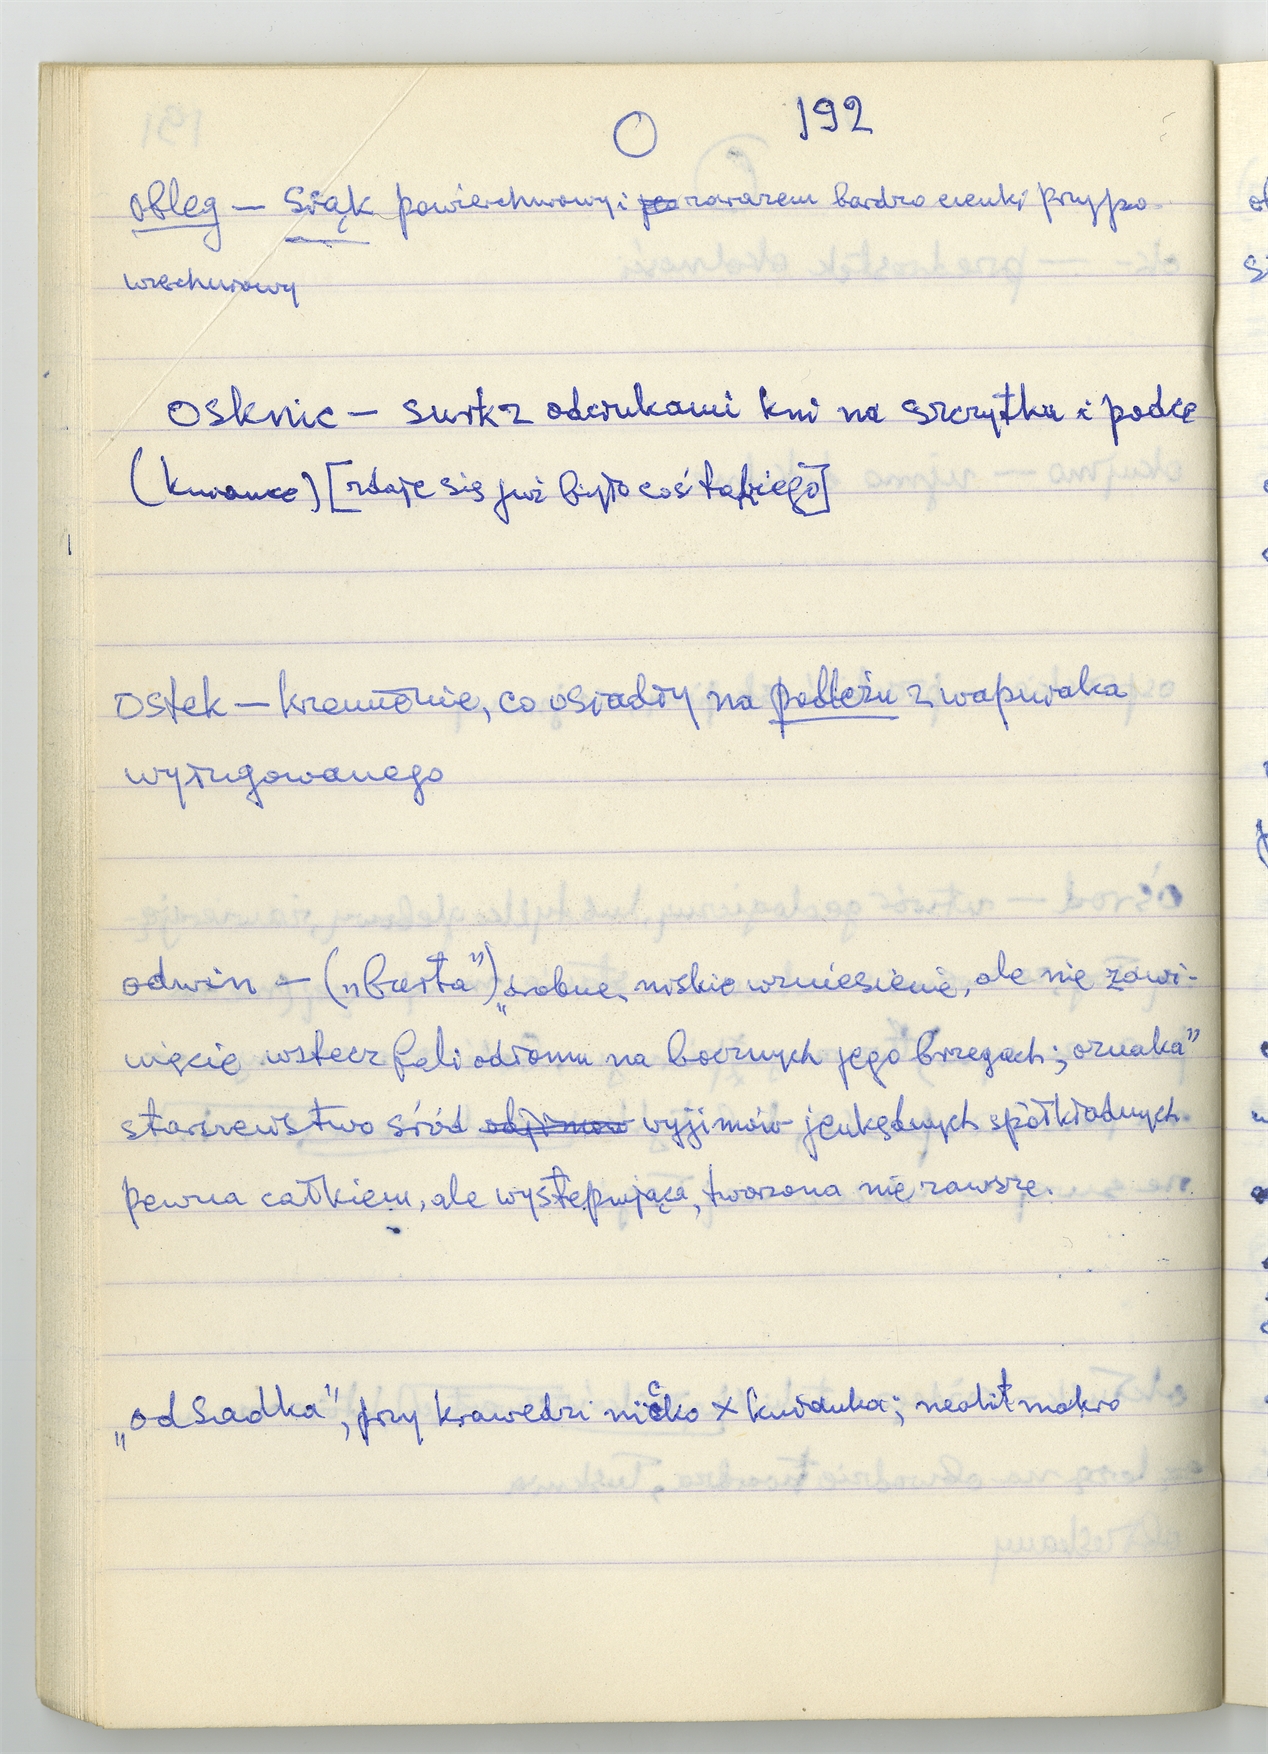 O 192
obleg — siąk powierzchniowy i zarazem bardzo cienki przypo-
wierzchniowy
Osknic — surk z odciskami kni na szczytku i podce
(kniance) [zdaje się już było coś takiego]
Ostek — krzemionie, co osiadły na podłożu z wapniaka
wyługowanego
odwin — („burta”) „drobne, niskie wzniesienie, ale nie zawi-
nięcie wstecz fali odłomu na bocznych jego brzegach; oznaka”
starszeństwa śród odjimów wyjimów jenkędnych spółkładnych
pewna całkiem, ale występująca, tworzona nie zawsze.
„odsadka”, przy krawędzi niecko × knianka; neolit makro